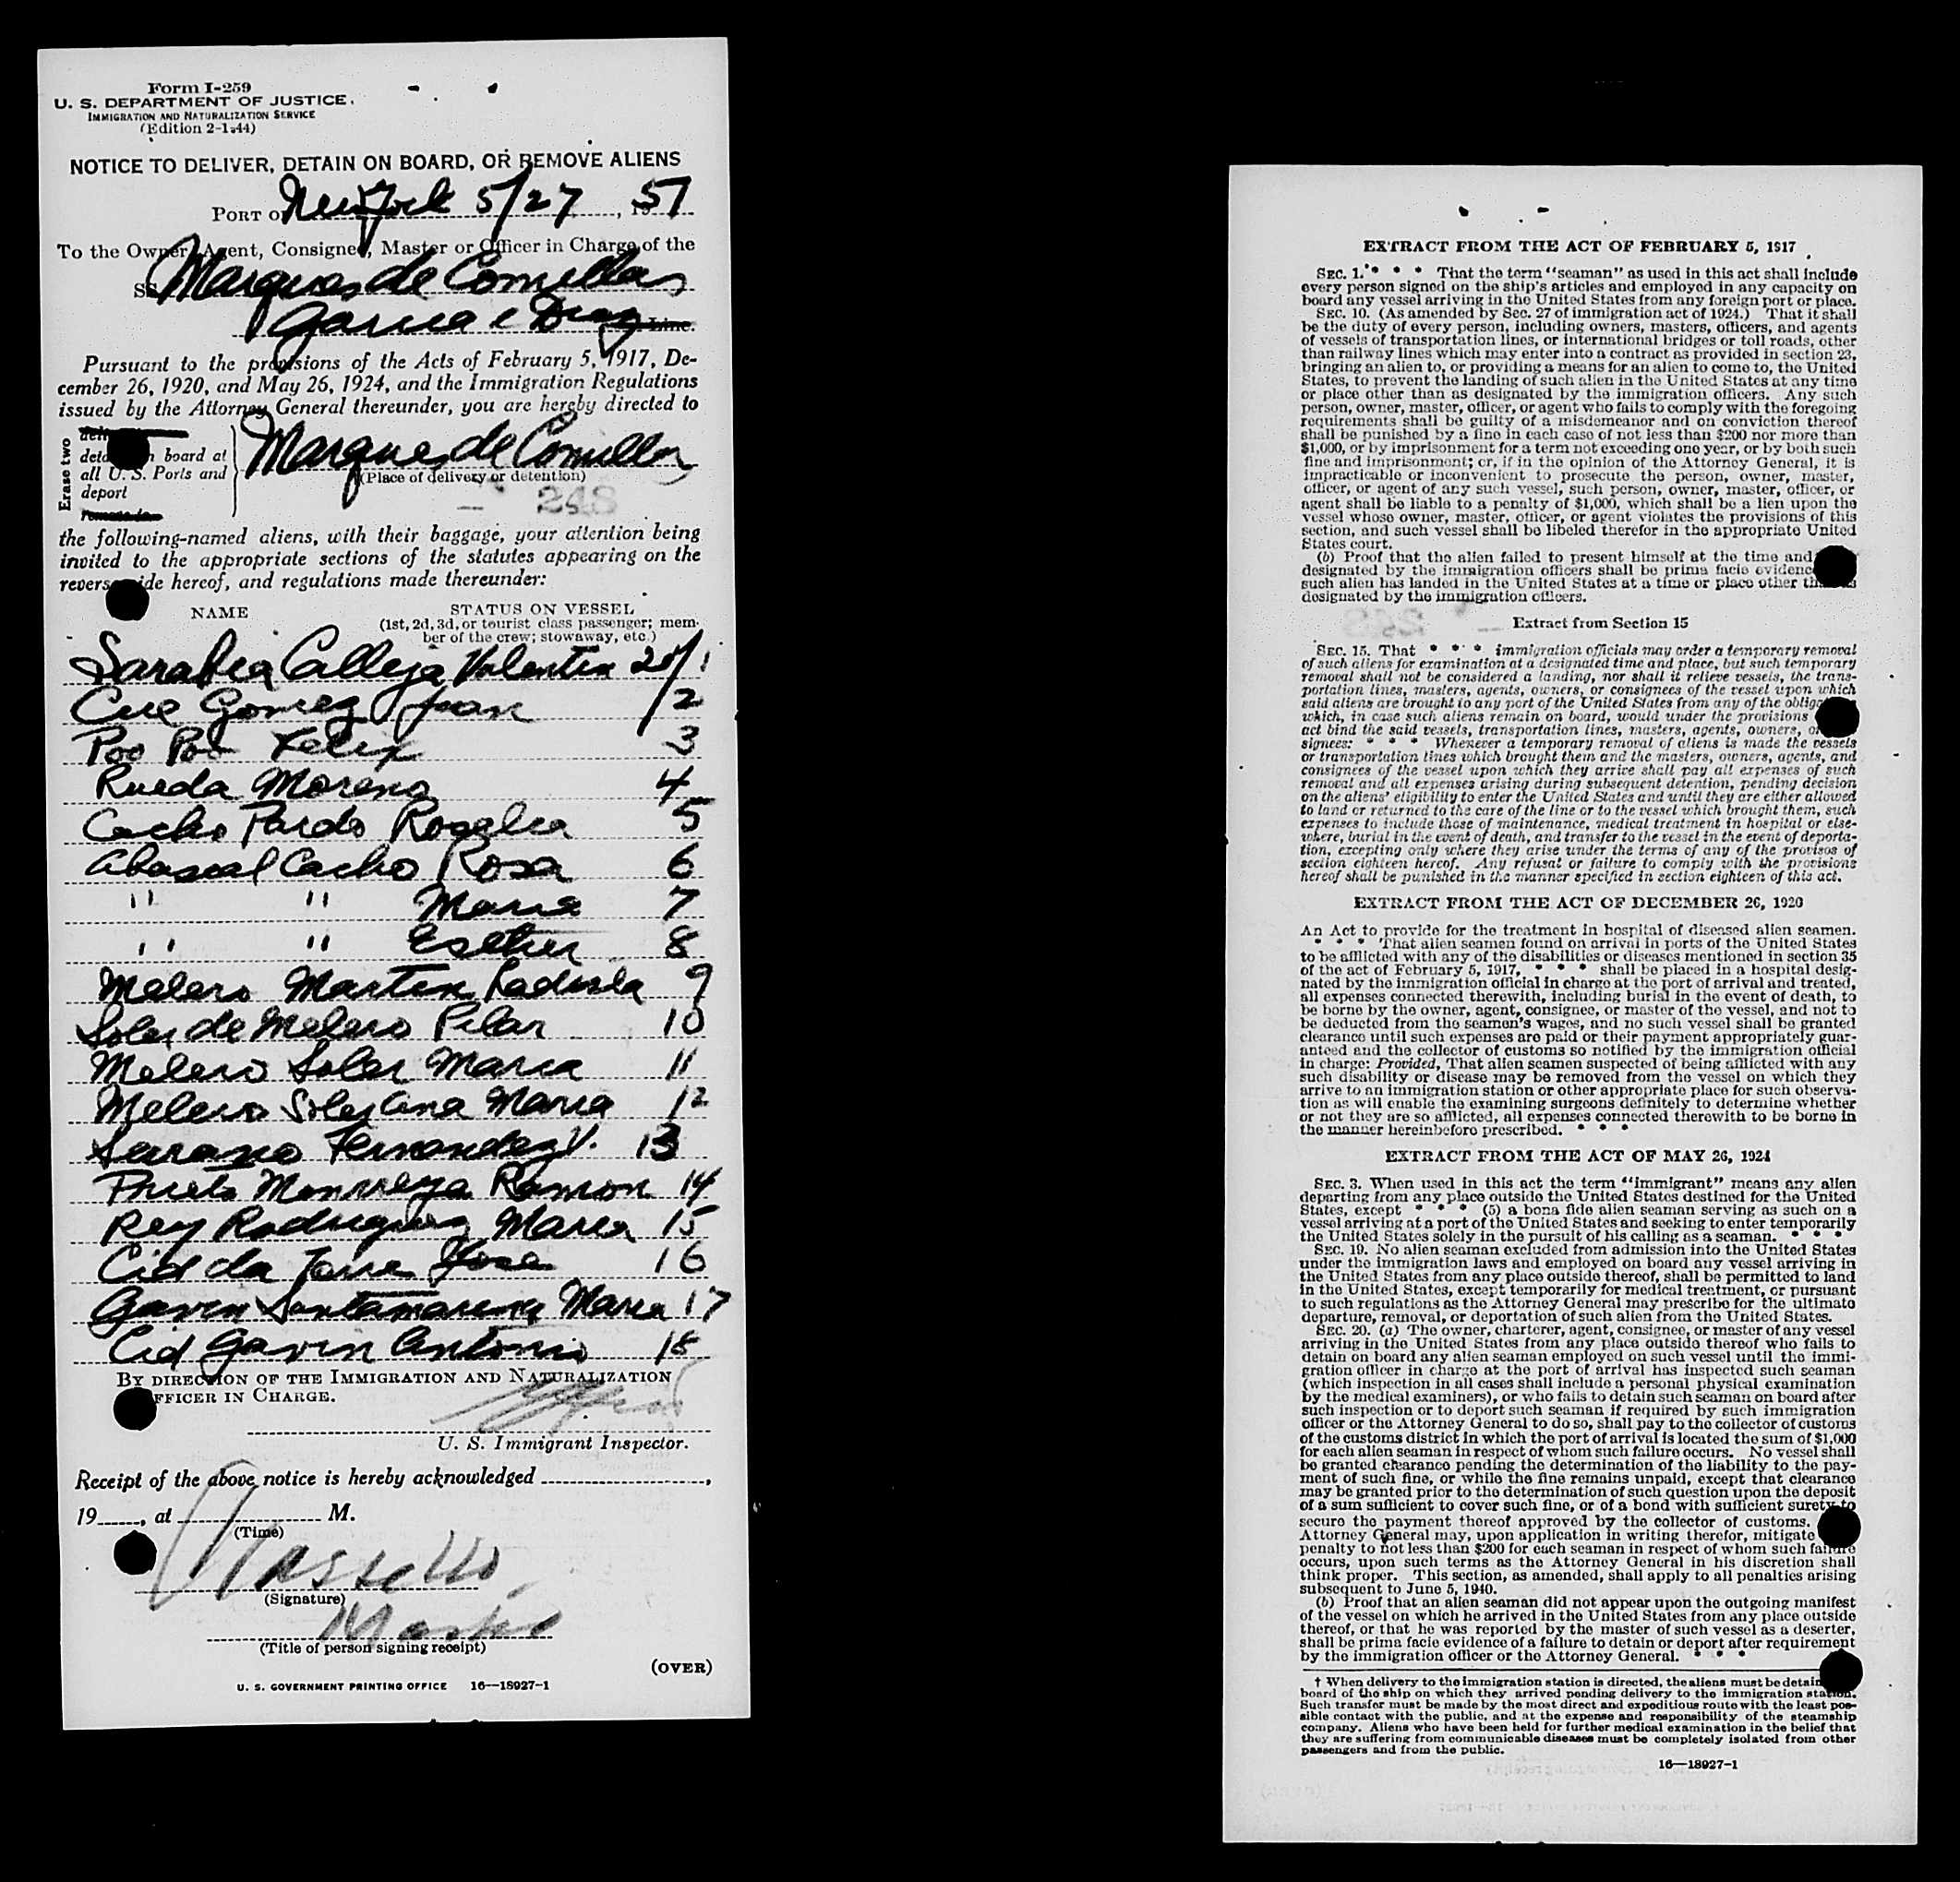 Form I-259
U. S. DEPARTMENT OF JUSTICE
IMMIGRATION AND NATURALIZATION SERVICE
(Edition 2-1-44)
NOTICE TO DELIVER, DETAIN ON BOARD, OR REMOVE ALIENS
PORT OF New York 5/27, 1951
To the Owner, Agent, Consignee, Master or Officer in Charge of the
SS Marques de Comillas
Garcia e Diaz Line.
Pursuant to the provisions of the Acts of February 5, 1917, De-
cember 26, 1920, and May 26, 1924, and the Immigration Regulations
issued by the Attorney General thereunder, you are hereby directed to
Erase two
board at
all U. S. Ports and
deport
Marques de Comillas
(Place of delivery or detention)
248
the following-named aliens, with their baggage, your attention being
invited to the appropriate sections of the statutes appearing on the
reverse side hereof, and regulations made thereunder:
NAME STATUS ON VESSEL
(1st, 2d, 3d, or tourist class passenger; mem-
ber of the crew; stowaway, etc.)
Sarabia Calleja Valentin 20/1
Cue Gomez Juan 2
Poo Poo Felix 3
Rueda Moreno 4
Cacho Pardo Rogelia 5
Abascal Cacho Rosa 6
" " Maria 7
" " Esther 8
Melero Martin Ladisla 9
Soler de Melero Pilar 10
Melero Soler Maria 11
Melero Soler Ana Maria 12
Fernandez V. 13
Prieto Ramon 14
Rey Rodriguez Maria 15
Cid da Jose 16
Gavin Santamarina Maria 17
Cid Gavin Antonio 18
BY DIRECTION OF THE IMMIGRATION AND NATURALIZATION
OFFICER IN CHARGE.
U. S. Immigrant Inspector.
Receipt of the above notice is hereby acknowledged ,
19 , at M.
(Time)
(Signature)
(Title of person signing receipt)
(OVER)
U. S. GOVERNMENT PRINTING OFFICE 16—18927-1
EXTRACT FROM THE ACT OF FEBRUARY 5, 1917
SEC. 1. * * * That the term "seaman" as used in this act shall include
every person signed on the ship's articles and employed in any capacity on
board any vessel arriving in the United States from any foreign port or place.
SEC. 10. (As amended by Sec. 27 of immigration act of 1924.) That it shall
be the duty of every person, including owners, masters, officers, and agents
of vessels of transportation lines, or international bridges or toll roads, other
than railway lines which may enter into a contract as provided in section 23,
bringing an alien to, or providing a means for an alien to come to, the United
States, to prevent the landing of such alien in the United States at any time
or place other than as designated by the immigration officers. Any such
person, owner, master, officer, or agent who fails to comply with the foregoing
requirements shall be guilty of a misdemeanor and on conviction thereof
shall be punished by a fine in each case of not less than $200 nor more than
$1,000, or by imprisonment for a term not exceeding one year, or by both such
fine and imprisonment; or, if in the opinion of the Attorney General, it is
impracticable or inconvenient to prosecute the person, owner, master,
officer, or agent of any such vessel, such person, owner, master, officer, or
agent shall be liable to a penalty of $1,000, which shall be a lien upon the
vessel whose owner, master, officer, or agent violates the provisions of this
section, and such vessel shall be libeled therefor in the appropriate United
States court.
(b) Proof that the alien failed to present himself at the time and
designated by the immigration officers shall be prima facie evidence
such alien has landed in the United States at a time or place other than
designated by the immigration officers.
Extract from Section 15
SEC. 15. That * * * immigration officials may order a temporary removal
of such aliens for examination at a designated time and place, but such temporary
removal shall not be considered a landing, nor shall it relieve vessels, the trans-
portation lines, masters, agents, owners, or consignees of the vessel upon which
said aliens are brought to any port of the United States from any of the obligations
which, in case such aliens remain on board, would under the provisions
act bind the said vessels, transportation lines, masters, agents, owners, or
signees: * * * Whenever a temporary removal of aliens is made the vessels
or transportation lines which brought them and the masters, owners, agents, and
consignees of the vessel upon which they arrive shall pay all expenses of such
removal and all expenses arising during subsequent detention, pending decision
on the aliens' eligibility to enter the United States and until they are either allowed
to land or returned to the care of the line or to the vessel which brought them, such
expenses to include those of maintenance, medical treatment in hospital or else-
where, burial in the event of death, and transfer to the vessel in the event of deporta-
tion, excepting only where they arise under the terms of any of the provisos of
section eighteen hereof. Any refusal or failure to comply with the provisions
hereof shall be punished in the manner specified in section eighteen of this act.
EXTRACT FROM THE ACT OF DECEMBER 26, 1920
An Act to provide for the treatment in hospital of diseased alien seamen.
* * * That alien seamen found on arrival in ports of the United States
to be afflicted with any of the disabilities or diseases mentioned in section 35
of the act of February 5, 1917, * * * shall be placed in a hospital desig-
nated by the immigration official in charge at the port of arrival and treated,
all expenses connected therewith, including burial in the event of death, to
be borne by the owner, agent, consignee, or master of the vessel, and not to
be deducted from the seamen's wages, and no such vessel shall be granted
clearance until such expenses are paid or their payment appropriately guar-
anteed and the collector of customs so notified by the immigration official
in charge: Provided, That alien seamen suspected of being afflicted with any
such disability or disease may be removed from the vessel on which they
arrive to an immigration station or other appropriate place for such observa-
tion as will enable the examining surgeons definitely to determine whether
or not they are so afflicted, all expenses connected therewith to be borne in
the manner hereinbefore prescribed. * * *
EXTRACT FROM THE ACT OF MAY 26, 1924
SEC. 3. When used in this act the term "immigrant" means any alien
departing from any place outside the United States destined for the United
States, except * * * (5) a bona fide alien seaman serving as such on a
vessel arriving at a port of the United States and seeking to enter temporarily
the United States solely in the pursuit of his calling as a seaman. * * *
SEC. 19. No alien seaman excluded from admission into the United States
under the immigration laws and employed on board any vessel arriving in
the United States from any place outside thereof, shall be permitted to land
in the United States, except temporarily for medical treatment, or pursuant
to such regulations as the Attorney General may prescribe for the ultimate
departure, removal, or deportation of such alien from the United States.
SEC. 20. (a) The owner, charterer, agent, consignee, or master of any vessel
arriving in the United States from any place outside thereof who fails to
detain on board any alien seaman employed on such vessel until the immi-
gration officer in charge at the port of arrival has inspected such seaman
(which inspection in all cases shall include a personal physical examination
by the medical examiners), or who fails to detain such seaman on board after
such inspection or to deport such seaman if required by such immigration
officer or the Attorney General to do so, shall pay to the collector of customs
of the customs district in which the port of arrival is located the sum of $1,000
for each alien seaman in respect of whom such failure occurs. No vessel shall
be granted clearance pending the determination of the liability to the pay-
ment of such fine, or while the fine remains unpaid, except that clearance
may be granted prior to the determination of such question upon the deposit
of a sum sufficient to cover such fine, or of a bond with sufficient surety to
secure the payment thereof approved by the collector of customs.
Attorney General may, upon application in writing therefor, mitigate
penalty to not less than $200 for each seaman in respect of whom such failure
occurs, upon such terms as the Attorney General in his discretion shall
think proper. This section, as amended, shall apply to all penalties arising
subsequent to June 5, 1940.
(b) Proof that an alien seaman did not appear upon the outgoing manifest
of the vessel on which he arrived in the United States from any place outside
thereof, or that he was reported by the master of such vessel as a deserter,
shall be prima facie evidence of a failure to detain or deport after requirement
by the immigration officer or the Attorney General. * * *
† When delivery to the immigration station is directed, the aliens must be detained
board of the ship on which they arrived pending delivery to the immigration station.
Such transfer must be made by the most direct and expeditious route with the least pos-
sible contact with the public, and at the expense and responsibility of the steamship
company. Aliens who have been held for further medical examination in the belief that
they are suffering from communicable diseases must be completely isolated from other
passengers and from the public.
16—18927-1